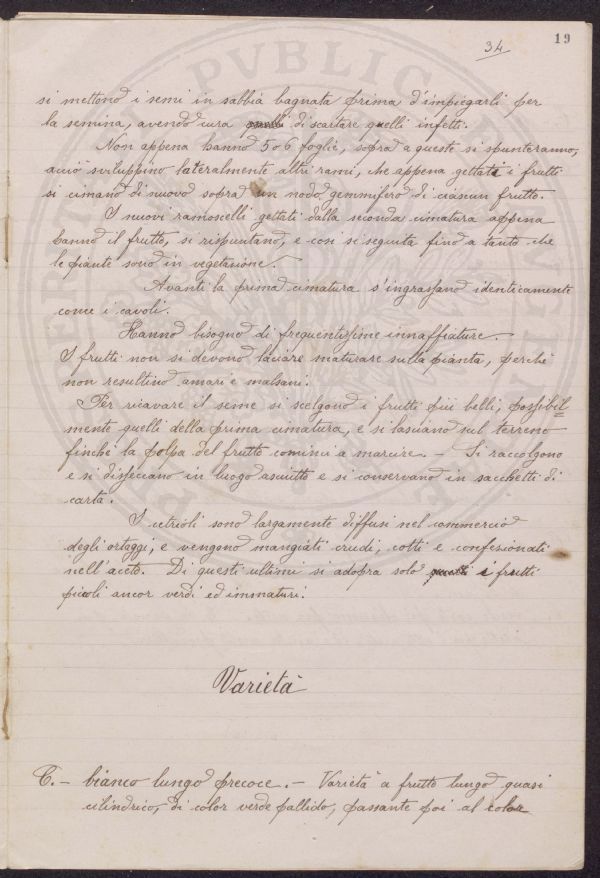 34
19
si mettono i semi in sabbia bagnata prima d'impiegarli per
la semina, avendo cura quelli di scartare quelli infetti.
Non appena hanno 5 o 6 foglie, sopra a queste si spunteranno,
acciò sviluppino lateralmente altri rami, che appena gettati i frutti
si cimano di nuovo sopra un nodo gemmifero di ciascun frutto.
I nuovi ramoscelli gettati dalla seconda cimatura appena
hanno il frutto, si rispuntano, e così si seguita fino a tanto che
le piante sono in vegetazione.
Avanti la prima cimatura s'ingrassano identicamente
come i cavoli.
Hanno bisogno di frequentissime innaffiature.
I frutti non si devono lasciare maturare sulla pianta, perchè
non resultino amari e malsani.
Per ricavare il seme si scelgono i frutti più belli, possibil
mente quelli della prima cimatura, e si lasciano sul terreno
finchè la polpa del frutto cominci a marcire. - Si raccolgono
e si disseccano in luogo asciutto e si conservano in sacchetti di
carta.
I cetrioli sono largamente diffusi nel commercio
degli ortaggi, e vengono mangiati crudi, cotti e confesionati
nell'aceto. Di questi ultimi si adopra solo i frutti
piccoli ancor verdi ed immaturi.
Varietà
C. - bianco lungo precoce. - Varietà a frutto lungo quasi
cilindrico, di color verde pallido, passante poi al color